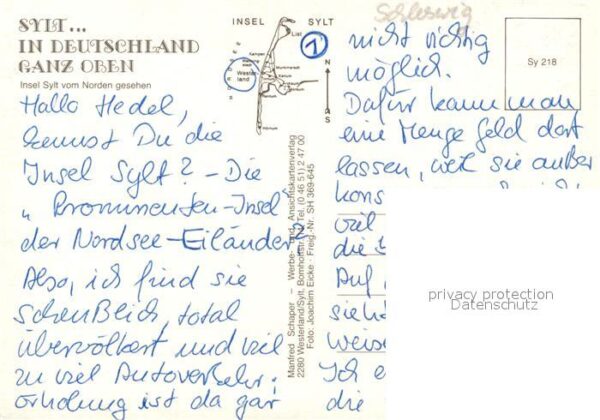 SYLT...
IN DEUTSCHLAND
GANZ OBEN
Insel Sylt vom Norden gesehen
Hallo Hedel,
kennst Du die
Insel Sylt? - Die
"Prominenten-Insel
der Nordsee-Eiländer?
Also, ich find sie
scheußlich, total
übervölkert und viel
zu viel Autoverkehr;
erholung ist da gar
INSEL SYLT
List
Kampen
Westerland
Hörnum
N
S
1
Manfred Schaper - Werbe- und Ansichtskartenverlag
2280 Westerland/Sylt, Tel. (0 46 51) 2 47 00
Foto: Joachim Eicke - Freig.-Nr. SH 369-645
Schleswig
Sy 218
nicht richtig
möglich.
Dafür kann man
eine Menge Geld dort
lassen, weil sie außer
kons
viel
die
Auf
sieht
weise
Ich
die
privacy protection
Datenschutz